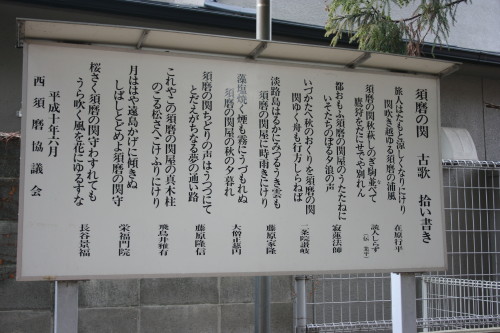 須磨の関 古歌 拾い書き
旅人はたもと涼しくなりにけり
関吹き越ゆる須磨の浦風
在原行平
須磨の関秋萩しのぎ駒並べて
鷹狩をだにせでや別れん
読人しらず
都おもふ須磨の関屋のうたたねに
いそたちのぼる夕浪の声
寂蓮法師
いづかたへ秋のおくりを須磨の関
関ゆく舟も行方しらねば
二条院讃岐
淡路島はるかにみつるうき雲も
須磨の関屋に時雨きにけり
藤原家隆
藻塩焼く煙も霧にうづもれぬ
須磨の関屋の秋の夕暮れ
大僧正慈円
須磨の関ちどりの声はうつつにて
とだえがちなる夢の通い路
藤原隆信
これやこの須磨の関屋の真木柱
のこる松さへこけふりにけり
飛鳥井雅有
月ははや遠島かげに傾きぬ
しばしとどめよ須磨の関守
栄福門院
桜さく須磨の関守わすれても
うら吹く風を花にゆるすな
長谷景福
平成十年六月
西須磨協議会